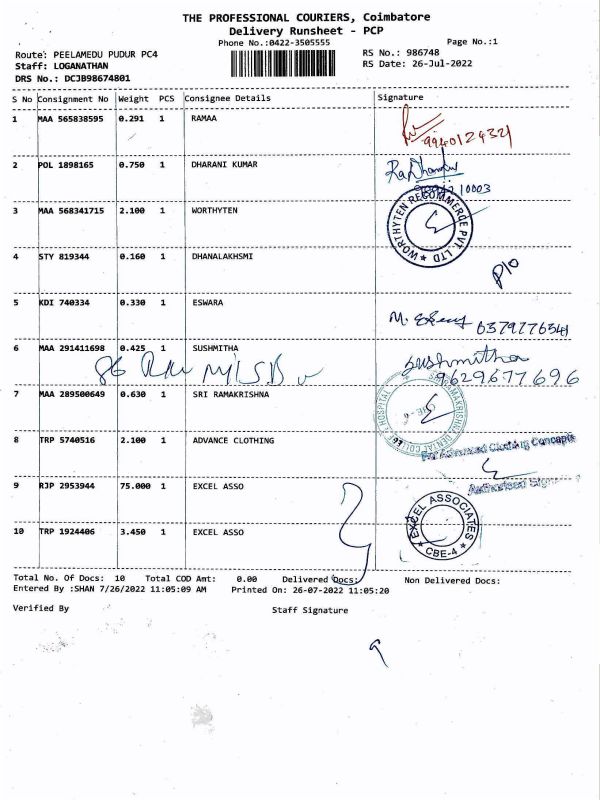 THE PROFESSIONAL COURIERS, Coimbatore
Delivery Runsheet - PCP
Phone No.:0422-3505555
Page No.:1
Route: PEELAMEDU PUDUR PC4
RS No.: 986748
Staff: LOGANATHAN
RS Date: 26-Jul-2022
DRS No.: DCJB98674801
S No Consignment No Weight PCS Consignee Details Signature
1 MAA 565838595 0.291 1 RAMAA
9940124321
2 POL 1898165 0.750 1 DHARANI KUMAR
3 MAA 568341715 2.100 1 WORTHYTEN
WORTHYTEN RECOMMERCE PVT. LTD
4 STY 819344 0.160 1 DHANALAKHSMI
P/O
5 KDI 740334 0.330 1 ESWARA
6379776541
6 MAA 291411698 0.425 1 SUSHMITHA
sushmitha
9629677696
7 MAA 289500649 0.630 1 SRI RAMAKRISHNA
SRI RAMAKRISHNA DENTAL COLLEGE HOSPITAL
8 TRP 5740516 2.100 1 ADVANCE CLOTHING
For Advanced Clothing Concepts
Authorised
9 RJP 2953944 75.000 1 EXCEL ASSO
EXCEL ASSOCIATES
CBE-4
10 TRP 1924406 3.450 1 EXCEL ASSO
Total No. Of Docs: 10 Total COD Amt: 0.00 Delivered Docs: Non Delivered Docs:
Entered By :SHAN 7/26/2022 11:05:09 AM Printed On: 26-07-2022 11:05:20
Verified By Staff Signature